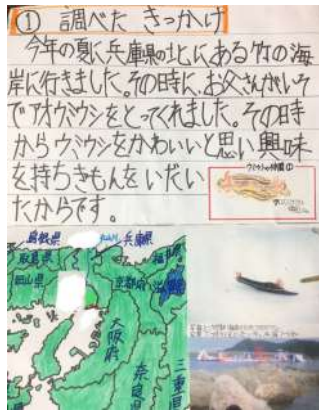 ① 調べた きっかけ
今年の夏に兵庫県の北にある竹の海
岸に行きました。その時に、お父さんがいそ
でアオウミウシをとってくれました。その時
からウミウシをかわいいと思い興味
を持ちぎもんをいだい
たからです。
ウミウシの仲間①
島根県
兵庫県
鳥取県
岡山県
京都府
福井県
滋賀県
大阪府
奈良県
三重県